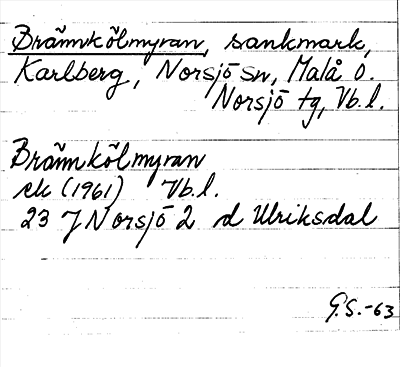 Brännkölmyran, sankmark,
Karlberg, Norsjö sn, Malå o.
Norsjö tg, Vb.l.
Brännkölmyran
ek (1961) Vb.l.
23 J Norsjö 2 d Ulriksdal
G.S.-63